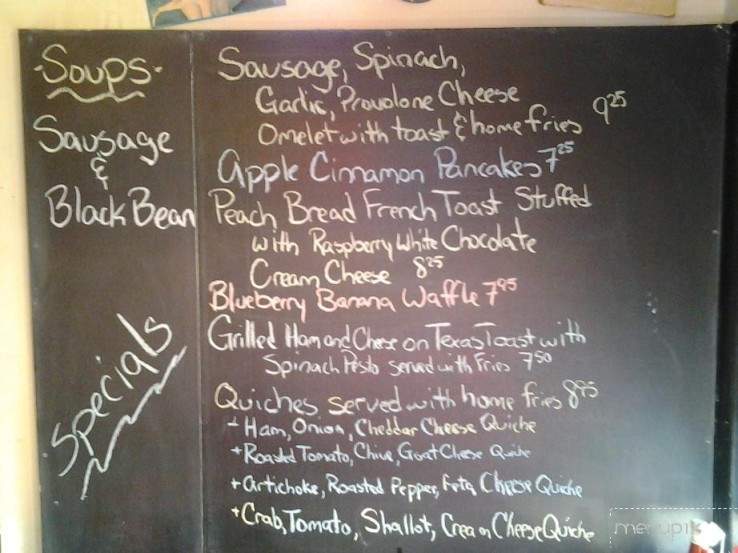 -Soups-
Sausage
&
Black Bean
Specials
Sausage, Spinach,
Garlic, Provolone Cheese
Omelet with toast & home fries 9.25
Apple Cinnamon Pancakes 7.25
Peach Bread French Toast Stuffed
with Raspberry White Chocolate
Cream Cheese 8.25
Blueberry Banana Waffle 7.95
Grilled Ham and Cheese on Texas Toast with
Spinach Pesto served with Fries 7.50
Quiches served with home fries 8.95
+ Ham, Onion, Cheddar Cheese Quiche
+ Roasted Tomato, Chive, Goat Cheese Quiche
+ Artichoke, Roasted Pepper, Feta, Cheese Quiche
+ Crab, Tomato, Shallot, Cream Cheese Quiche
menupix